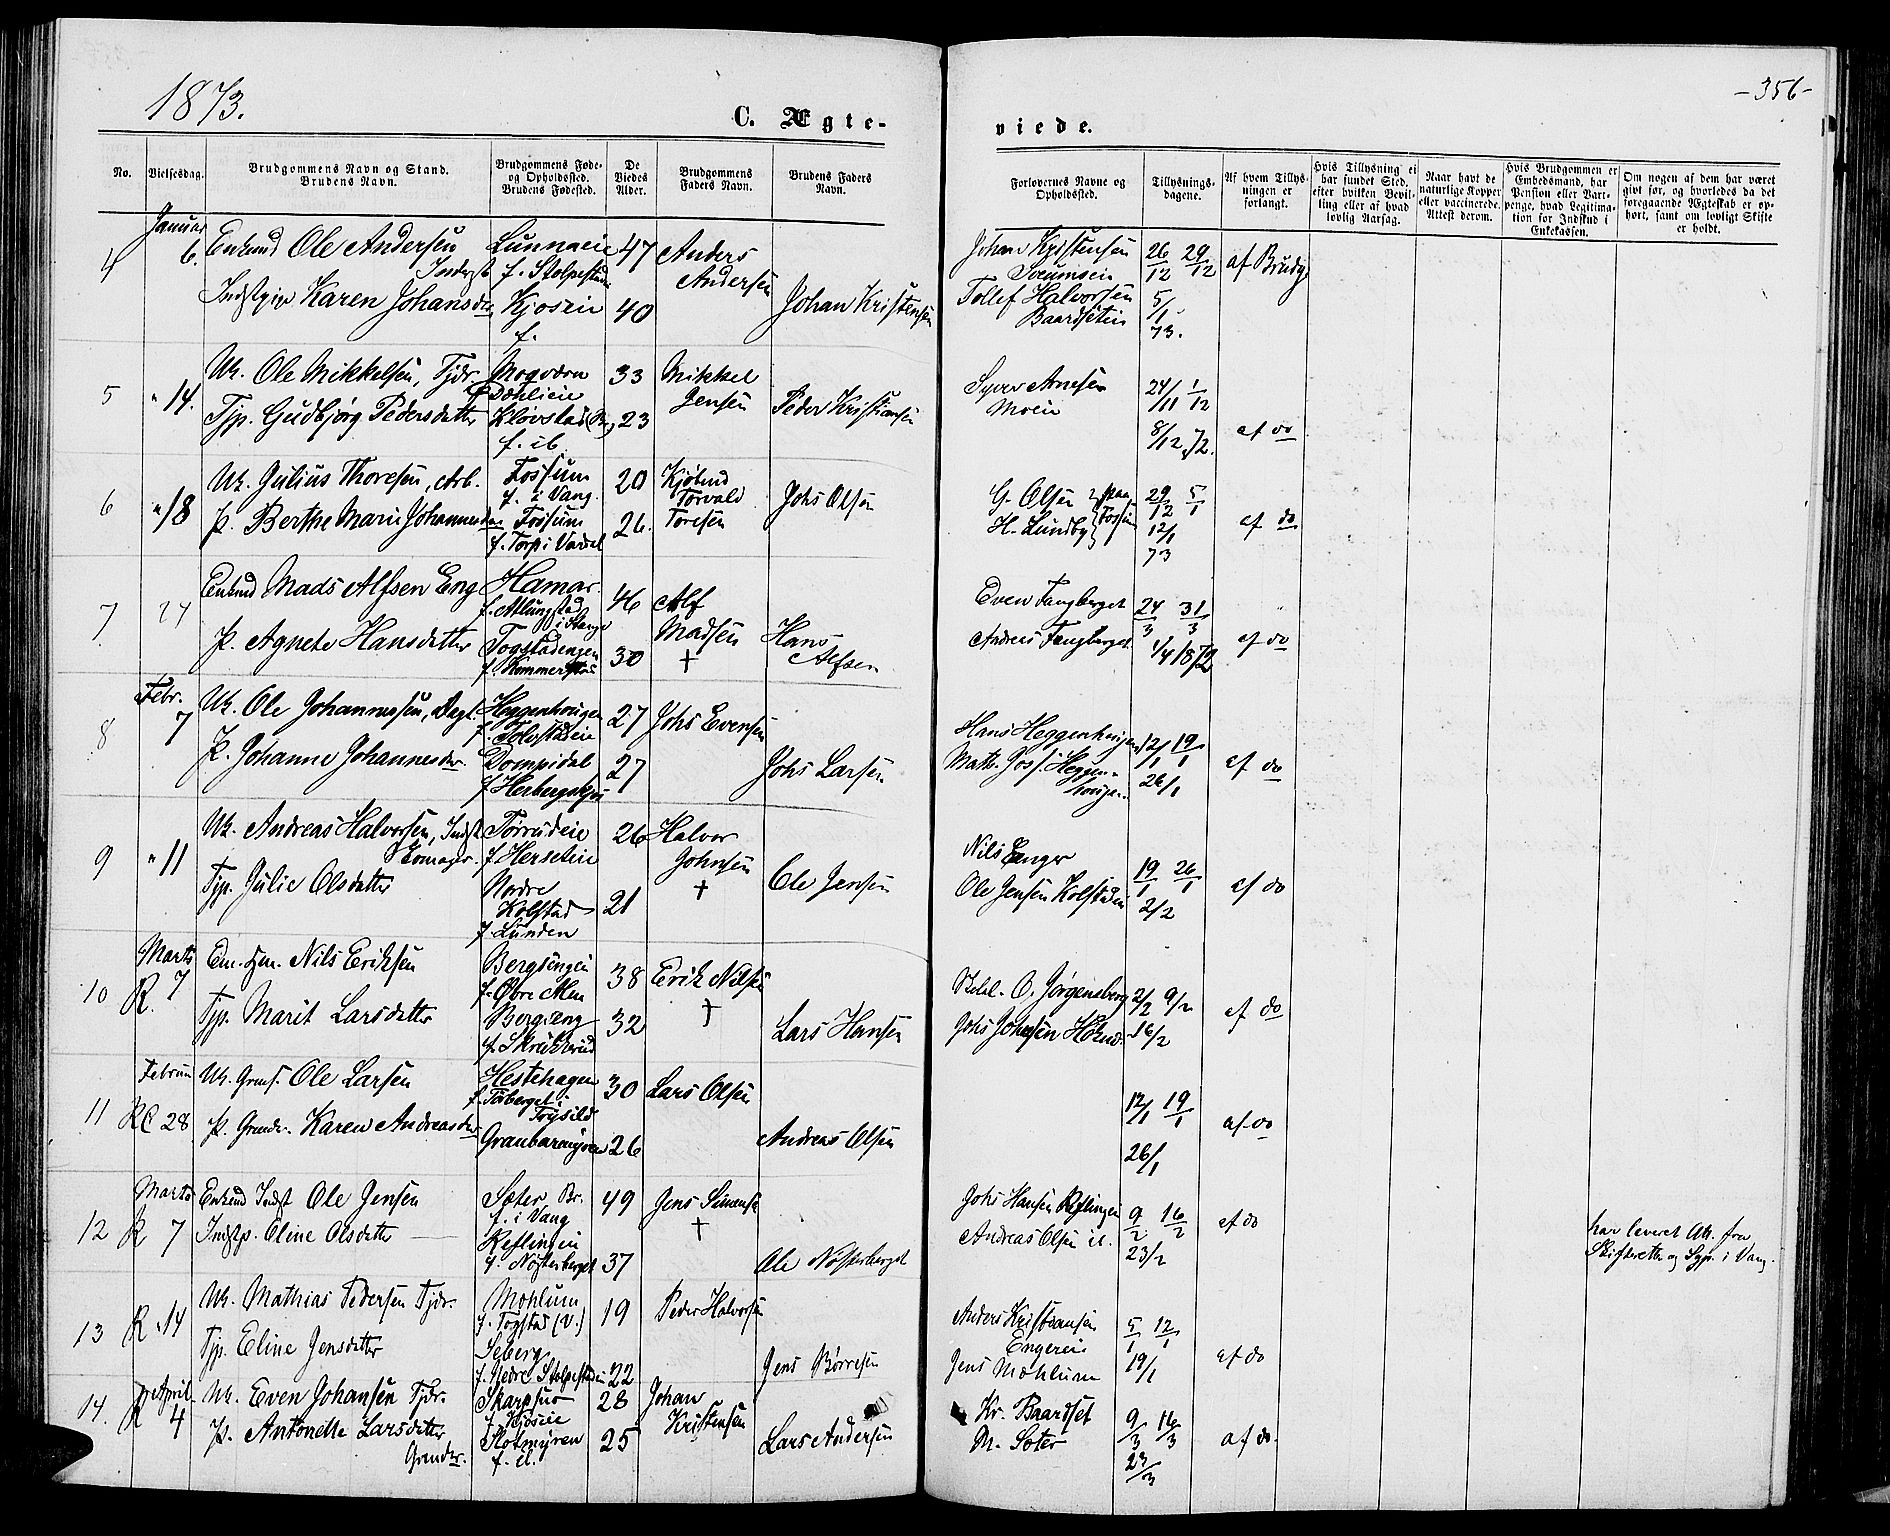 1873.
C. Ægte-
viede.
-356-
No.
Vielsesdag.
Brudgommens Navn og Stand.
Brudens Navn.
Brudgommens Føde-
og Opholdssted.
Brudens Fødested.
De
Viedes
Alder.
Brudgommens
Faders Navn.
Brudens Faders
Navn.
Forlovernes Navne og
Opholdssted.
Tillysnings-
dagene.
Af hvem Tillys-
ningen er
forlangt.
Hvis Tillysning ei
har fundet Sted,
efter hvilken Bevil-
ling eller af hvad
lovlig Aarsag.
Naar havt de
naturlige Kopper
eller vaccinerede.
Attest derom.
Hvis Brudgommen er
Embedsmand, har
Pension eller Vart-
penge, hvad Legitima-
tion for Indskud i
Enkekassen.
Om nogen af dem har været
gift før, og hvorledes da det
foregaaende Ægteskab er op-
hørt, samt om lovligt Skifte
er holdt.
4 Januar 6. Enkmd Ole Andersen
Inderst
Lunnaeie
f. Stolpestad
47 Anders
Andersen
Johan Kristensen
26/12 29/12 af Brudg.
Karen Johansdr
40 Johan Kristensen
Tollef Halvorsen
Baardseteie
5/1
73.
5 " 14. Uk. Ole Mikkelsen, Tjdr.
33 Mikkel
Jensen
Syver Arnesen
Moeie
24/11 1/12
Tjp. Gudbjørg Pedersdatter
Kløvstad
f. ib.
23 Peder Kristiansen
8/12 72. af do
6 " 18 Uk. Julius Thoresen, Arb.
Fossum
f. i Vang.
20 Kjøbmd
Torvald
Toresen
G. Olsen
29/12 5/1
P. Berthe Marie Johannesdr
Fossum
f. Torp i Vardal
26. Johs Olsen
H. Lundby
Fossum
12/1
73
af do
7 27 Enkmd Mads Alfsen Eng
Hamar.
f. Atlungstad
i Stange
46 Alf
Madsen
†
Even Fangberget
24/3 31/3
P. Agnete Hansdatter
30 Hans
Alfsen
Andreas Fangberget
1/4 1872 af do
8 Febr. 7 Uk. Ole Johannessen, Dagl.
Heggenhougen
f. Tolvstadeie
27 Johs Evensen
Hans Heggenhougen
12/1 19/1
P. Johanne Johannesdr.
Dompidal
27 Johs Larsen
Math. Joh. Heggen-
26/1 af do
9 " 11 Uk. Andreas Halvorsen, Indst
Skomager.
Tørrudeie
f. Herseteie
26 Halvor
Johnsen
†
Nils Enger
19/1 26/1
Tjp. Julie Olsdatter
Nordre
Kolstad
f. Lunden
21 Ole Jensen
Ole Jensen Kolstadeie
2/2 af do
10 Marts R. 7 Em. Nils Eriksen
f. Øvre Alm
38 Erik Nilsen
†
O. Jørgensberg
2/2 9/2
Tjp. Marit Larsdatter
Bergseng
f. Skrukkerud
32 Lars Hansen
16/2 af do
11 Februar 28 Uk. Ole Larsen
Hestehagen
f. Tørberget i
Trysild
30 Lars Olsen
12/1 19/1
P. Karen Andreasdr
26 Andreas Olsen
26/1 af do
12 Marts R 7 Enkmd Indst Ole Jensen
Sæter Br.
f. i Vang
49 Jens Simensen
†
Johs Hansen Keflingen
9/2 16/2
Indstp. Oline Olsdatter
Keflingen
f. Nøsterberget
37 Ole Nøsterberget
Andreas Olsen ib.
23/2 af do
har leveret Att. fra
Skifteretten og Sgpr. i Vang.
13 R " 14 Uk. Mathias Pedersen Tjdr.
Mohlum
f. Togstad (V.)
19 Peder Halvorsen
Anders Kristiansen
Engereie
5/1 12/1
Tjp. Eline Jensdatter
Seberg
f. Nedre Stolpestadeie
22 Jens Børresen
Jens Mohlum
19/1 af do
14. April R 4 Uk. Even Johansen Tjdr.
Skarpsno
f. Kjoseie
28 Johan
Kristensen
Kr. Baardset
9/3 16/3
P. Antonette Larsdatter
Slotmyren
f. ib.
25 Lars Andersen
M. Soter
23/3 af do.